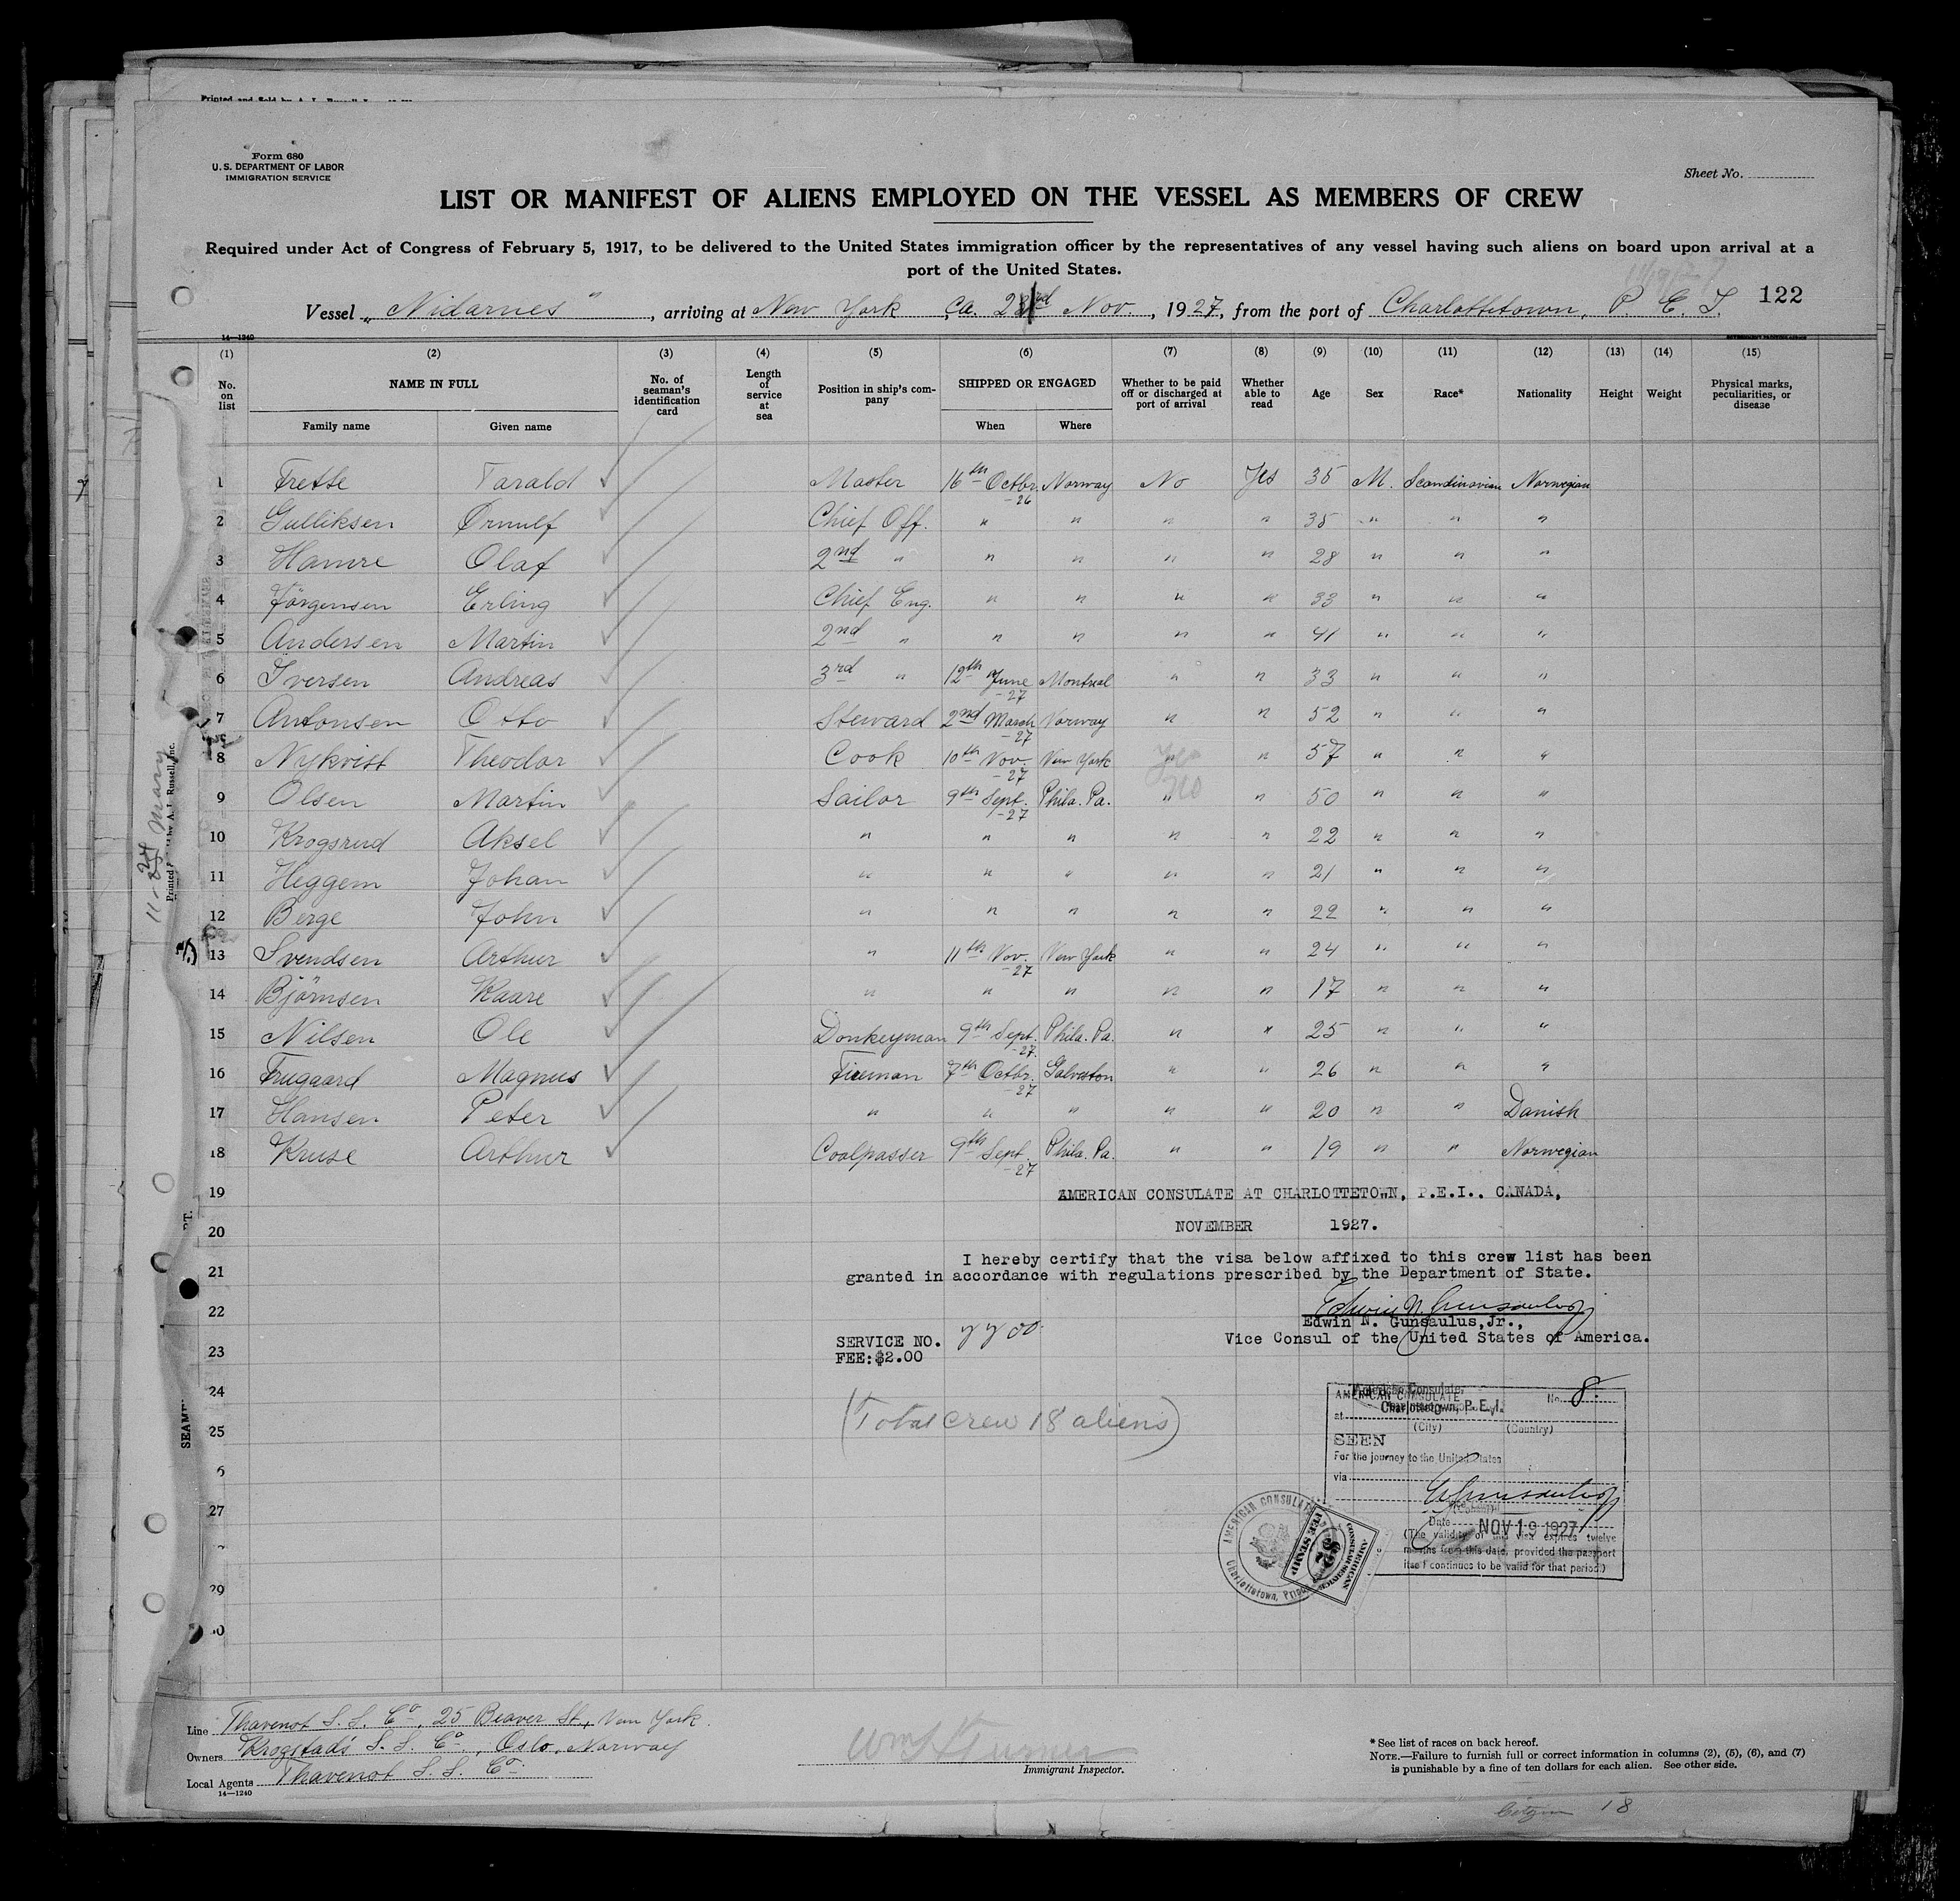 Form 680
U.S. DEPARTMENT OF LABOR
IMMIGRATION SERVICE
Sheet No.
LIST OR MANIFEST OF ALIENS EMPLOYED ON THE VESSEL AS MEMBERS OF CREW
Required under Act of Congress of February 5, 1917, to be delivered to the United States immigration officer by the representatives of any vessel having such aliens on board upon arrival at a
port of the United States.
122
Vessel „ Nidarnes ", arriving at New York, ca. Nov., 1927, from the port of Charlottetown, P. E. I.
14—1240
(1) (2) (3) (4) (5) (6) (7) (8) (9) (10) (11) (12) (13) (14) (15)
No. on list NAME IN FULL No. of seaman's identification card Length of service at sea Position in ship's company SHIPPED OR ENGAGED Whether to be paid off or discharged at port of arrival Whether able to read Age Sex Race* Nationality Height Weight Physical marks, peculiarities, or disease
Family name Given name When Where
1 Frette Tarald Master 16th Octbr. -26 Norway No Yes 35 M. Scandinavian Norwegian
2 Gulliksen Ørnulf Chief Off. " " " " 35 " " "
3 Hamre Olaf 2nd " " " " " 28 " " "
4 Jörgensen Erling Chief Eng. " " " " 33 " " "
5 Andersen Martin 2nd " " " " " 41 " " "
6 Iversen Andreas 3rd " 12th June -27 Montreal " " 33 " " "
7 Antonsen Otto Steward 2nd March -27 Norway " " 52 " " "
8 Nykvist Theodor Cook 10th Nov. -27 New York " " 57 " " "
9 Olsen Martin Sailor 9th Sept. -27 Phila. Pa. " No " 50 " " "
10 Krogsrud Aksel " " " " " 22 " " "
11 Heggem Johan " " " " " 21 " " "
12 Berge John " " " " " 22 " " "
13 Svendsen Arthur " 11th Nov. -27 New York " " 24 " " "
14 Björnsen Kaare " " " " " 17 " " "
15 Nilsen Ole Donkeyman 9th Sept. -27. Phila. Pa. " " 25 " " "
16 Frugaard Magnus Fireman 7th Octbr. 27 Galveston " " 26 " " "
17 Hansen Peter " " " " " 20 " " Danish
18 Kruse Arthur Coalpasser 9th Sept. -27 Phila. Pa. " " 19 " " Norwegian
19
AMERICAN CONSULATE AT CHARLOTTETOWN, P.E.I., CANADA,
20
NOVEMBER 1927.
I hereby certify that the visa below affixed to this crew list has been
21
granted in accordance with regulations prescribed by the Department of State.
22
Edwin N. Gunsaulus, Jr.,
Vice Consul of the United States of America.
23
SERVICE NO.
FEE: $2.00
24
(Total crew 18 aliens)
25
AMERICAN CONSULATE No. 8.
American Consulate,
at Charlottetown, P.E.I.
(City) (Country)
SEEN
For the journey to the United States
via
27
Date NOV 19 1927
(The validity of this visa expires twelve
months from this date, provided the passport
itself continues to be valid for that period.)
AMERICAN CONSULATE
Charlottetown,
AMERICAN CONSULAR SERVICE
$2
FEE STAMP
29
Line Thavenot S. S. Co., 25 Beaver St., New York.
Owners Krogstad's S. S. Co., Oslo, Norway
Local Agents Thavenot S. S. Co.
14—1240
Wm Turner
Immigrant Inspector.
* See list of races on back hereof.
NOTE.—Failure to furnish full or correct information in columns (2), (5), (6), and (7)
is punishable by a fine of ten dollars for each alien. See other side.
18